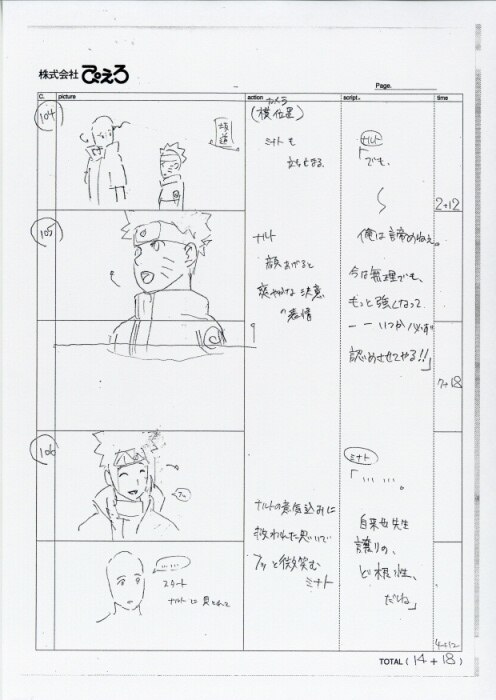 株式会社 ぴえろ
Page.
C. picture action script. time
104
坂道
カメラ
(横位置)
ミナトも
立ち止まる
ナルト
「でも、
2+12
105
ナルト
顔あげると
爽やかな決意
の表情
俺は諦めねぇ。
今は無理でも、
もっと強くなって
ーーいつか必ず
認めさせてやる!!」
7+18
106
ナルトの意気込みに
救われた思いで
フッと微笑む
ミナト
ミナト
「……。
自来也先生
譲りの、
ど根性、
だね」
……
スタート
ナルトに見とれて
4+12
TOTAL ( 14 + 18 )